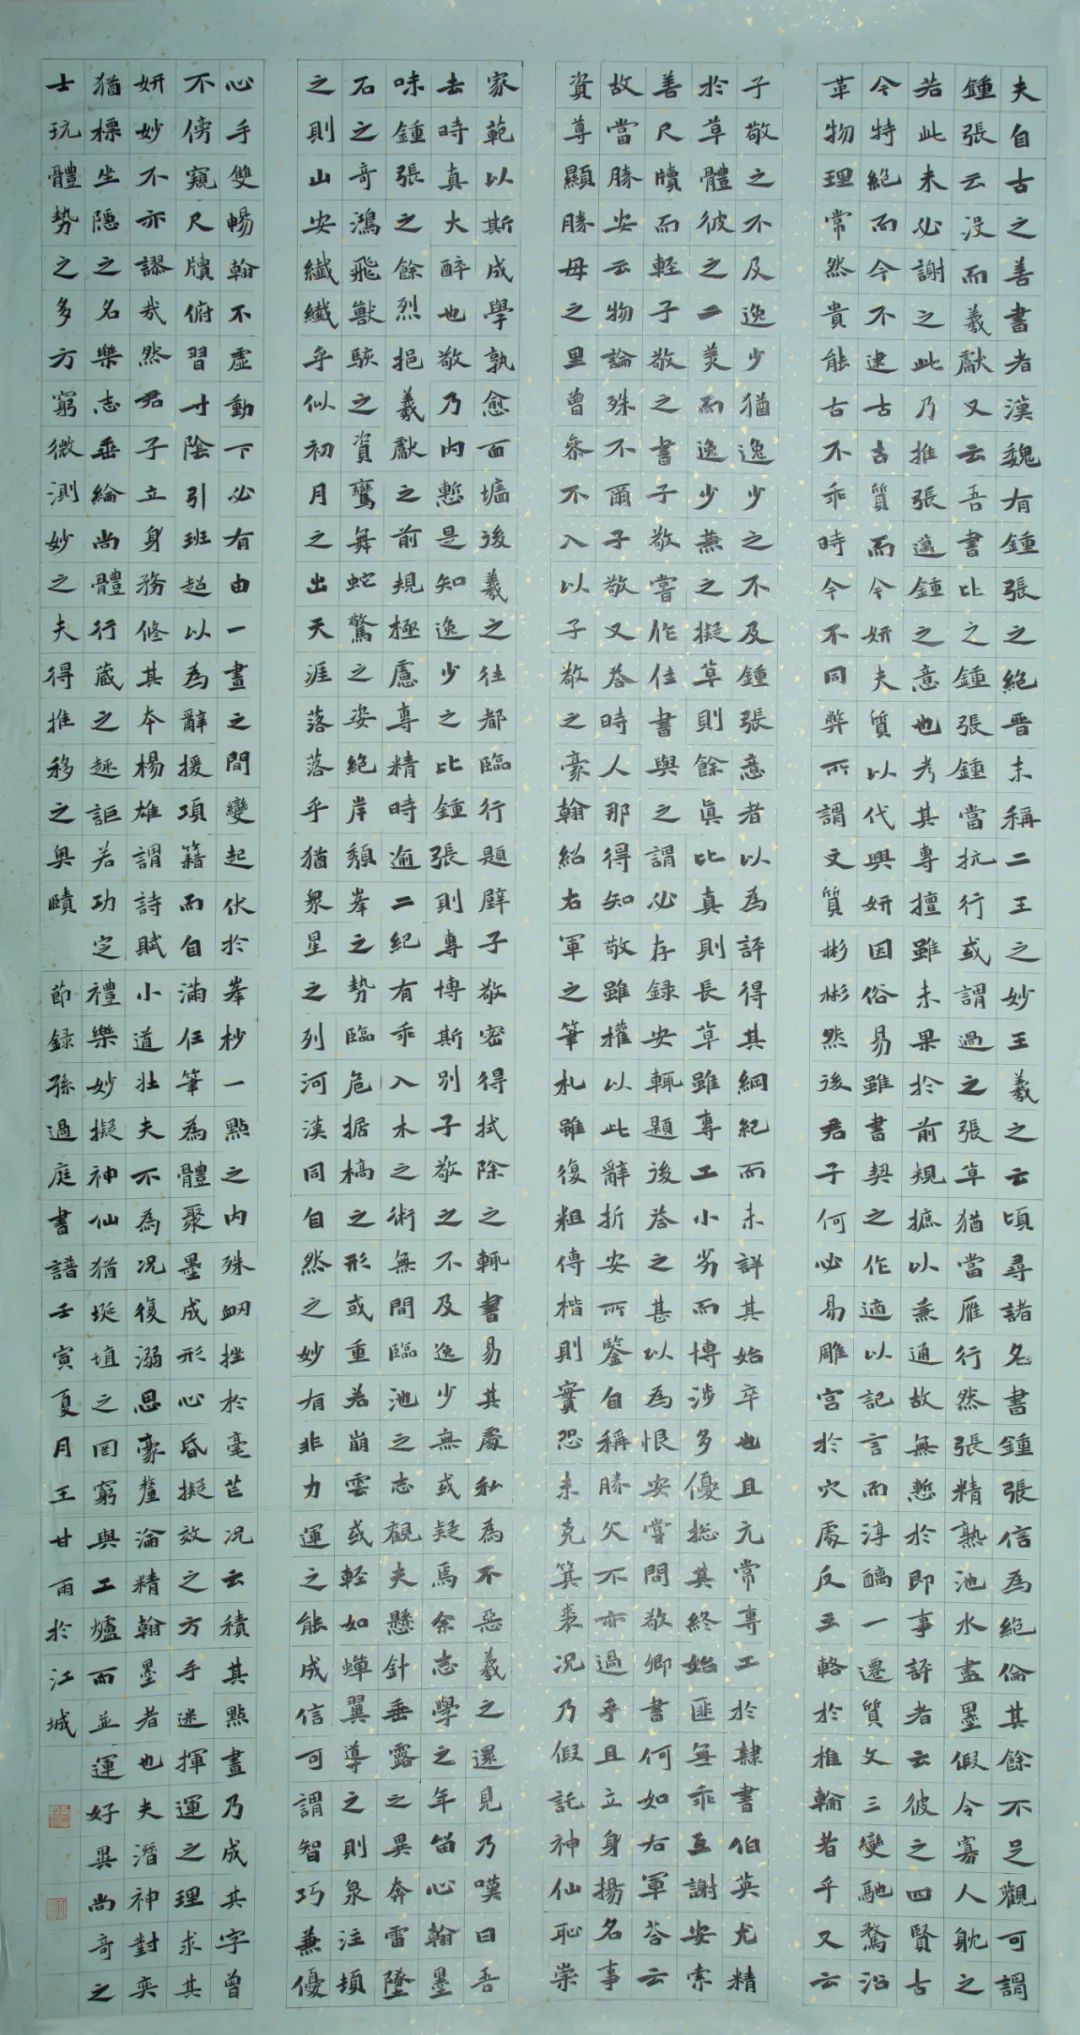 夫自古之善書者漢魏有鍾張之絕晉末稱二王之妙王羲之云頃尋諸名書鍾張信為絕倫其餘不足觀可謂
鍾張云沒而羲獻又云吾書比之鍾張鍾當抗行或謂過之張草猶當雁行然張精熟池水盡墨假令寡人耽之
若此未必謝之此乃推張邁鍾之意也考其專擅雖未果於前規摭以兼通故無慙於即事評者云彼之四賢古
今特絕而今不逮古古質而今妍夫質以代興妍因俗易雖書契之作適以記言而淳醨一遷質文三變馳鶩沿
革物理常然貴能古不乖時今不同弊所謂文質彬彬然後君子何必易雕宮於穴處反玉輅於椎輪者乎又云
子敬之不及逸少猶逸少之不及鍾張意者以為評得其綱紀而未詳其始卒也且元常專工於隸書伯英尤精
於草體彼之二美而逸少兼之擬草則餘真比真則長草雖專工小劣而博涉多優揔其終始匪無乖互謝安素
善尺牘而輕子敬之書子敬嘗作佳書與之謂必存錄安輒題後答之甚以為恨安嘗問敬卿書何如右軍答云
故當勝安云物論殊不爾子敬又答時人那得知敬雖權以此辭折安所鑒自稱勝父不亦過乎且立身揚名事
資尊顯勝母之里曾參不入以子敬之豪翰紹右軍之筆札雖復粗傳楷則實恐未克箕裘況乃假託神仙恥崇
家範以斯成學孰愈面墻後羲之往都臨行題壁子敬密得拭除之輒書易其處私為不惡羲之還見乃嘆曰吾
去時真大醉也敬乃內慙是知逸少之比鍾張則專博斯別子敬之不及逸少無或疑焉余志學之年留心翰墨
味鍾張之餘烈挹羲獻之前規極慮專精時逾二紀有乖入木之術無間臨池之志觀夫懸針垂露之異奔雷墜
石之奇鴻飛獸駭之資鸞舞蛇驚之姿絕岸頹峯之勢臨危据槁之形或重若崩雲或輕如蟬翼導之則泉注頓
之則山安纖纖乎似初月之出天涯落落乎猶衆星之列河漢同自然之妙有非力運之能成信可謂智巧兼優
心手雙暢翰不虛動下必有由一畫之間變起伏於峯杪一點之內殊衄挫於毫芒況云積其點畫乃成其字曾
不傍窺尺牘俯習寸陰引班超以為辭援項籍而自滿任筆為體聚墨成形心昏擬效之方手迷揮運之理求其
妍妙不亦謬哉然君子立身務修其本楊雄謂詩賦小道壯夫不為況復溺思豪釐淪精翰墨者也夫潛神對奕
猶標坐隱之名樂志垂綸尚體行藏之趣詎若功定禮樂妙擬神仙猶埏埴之罔窮與工爐而並運好異尚奇之
士玩體勢之多方窮微測妙之夫得推移之奧賾 節録孫過庭書譜壬寅夏月王甘雨於江城